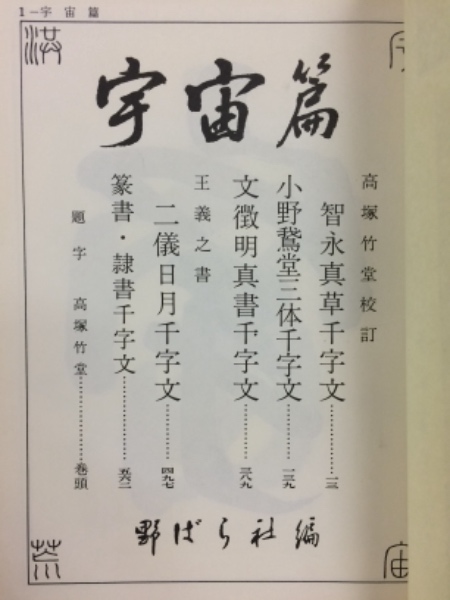 1―宇宙篇
宇宙篇
高塚竹堂校訂
智永真草千字文………一三
小野鵞堂三体千字文………
文徴明真書千字文………
王義之書
二儀日月千字文………四九七
篆書・隷書千字文………
題字 高塚竹堂………巻頭
野ばら社編
洪
宇
荒
宙